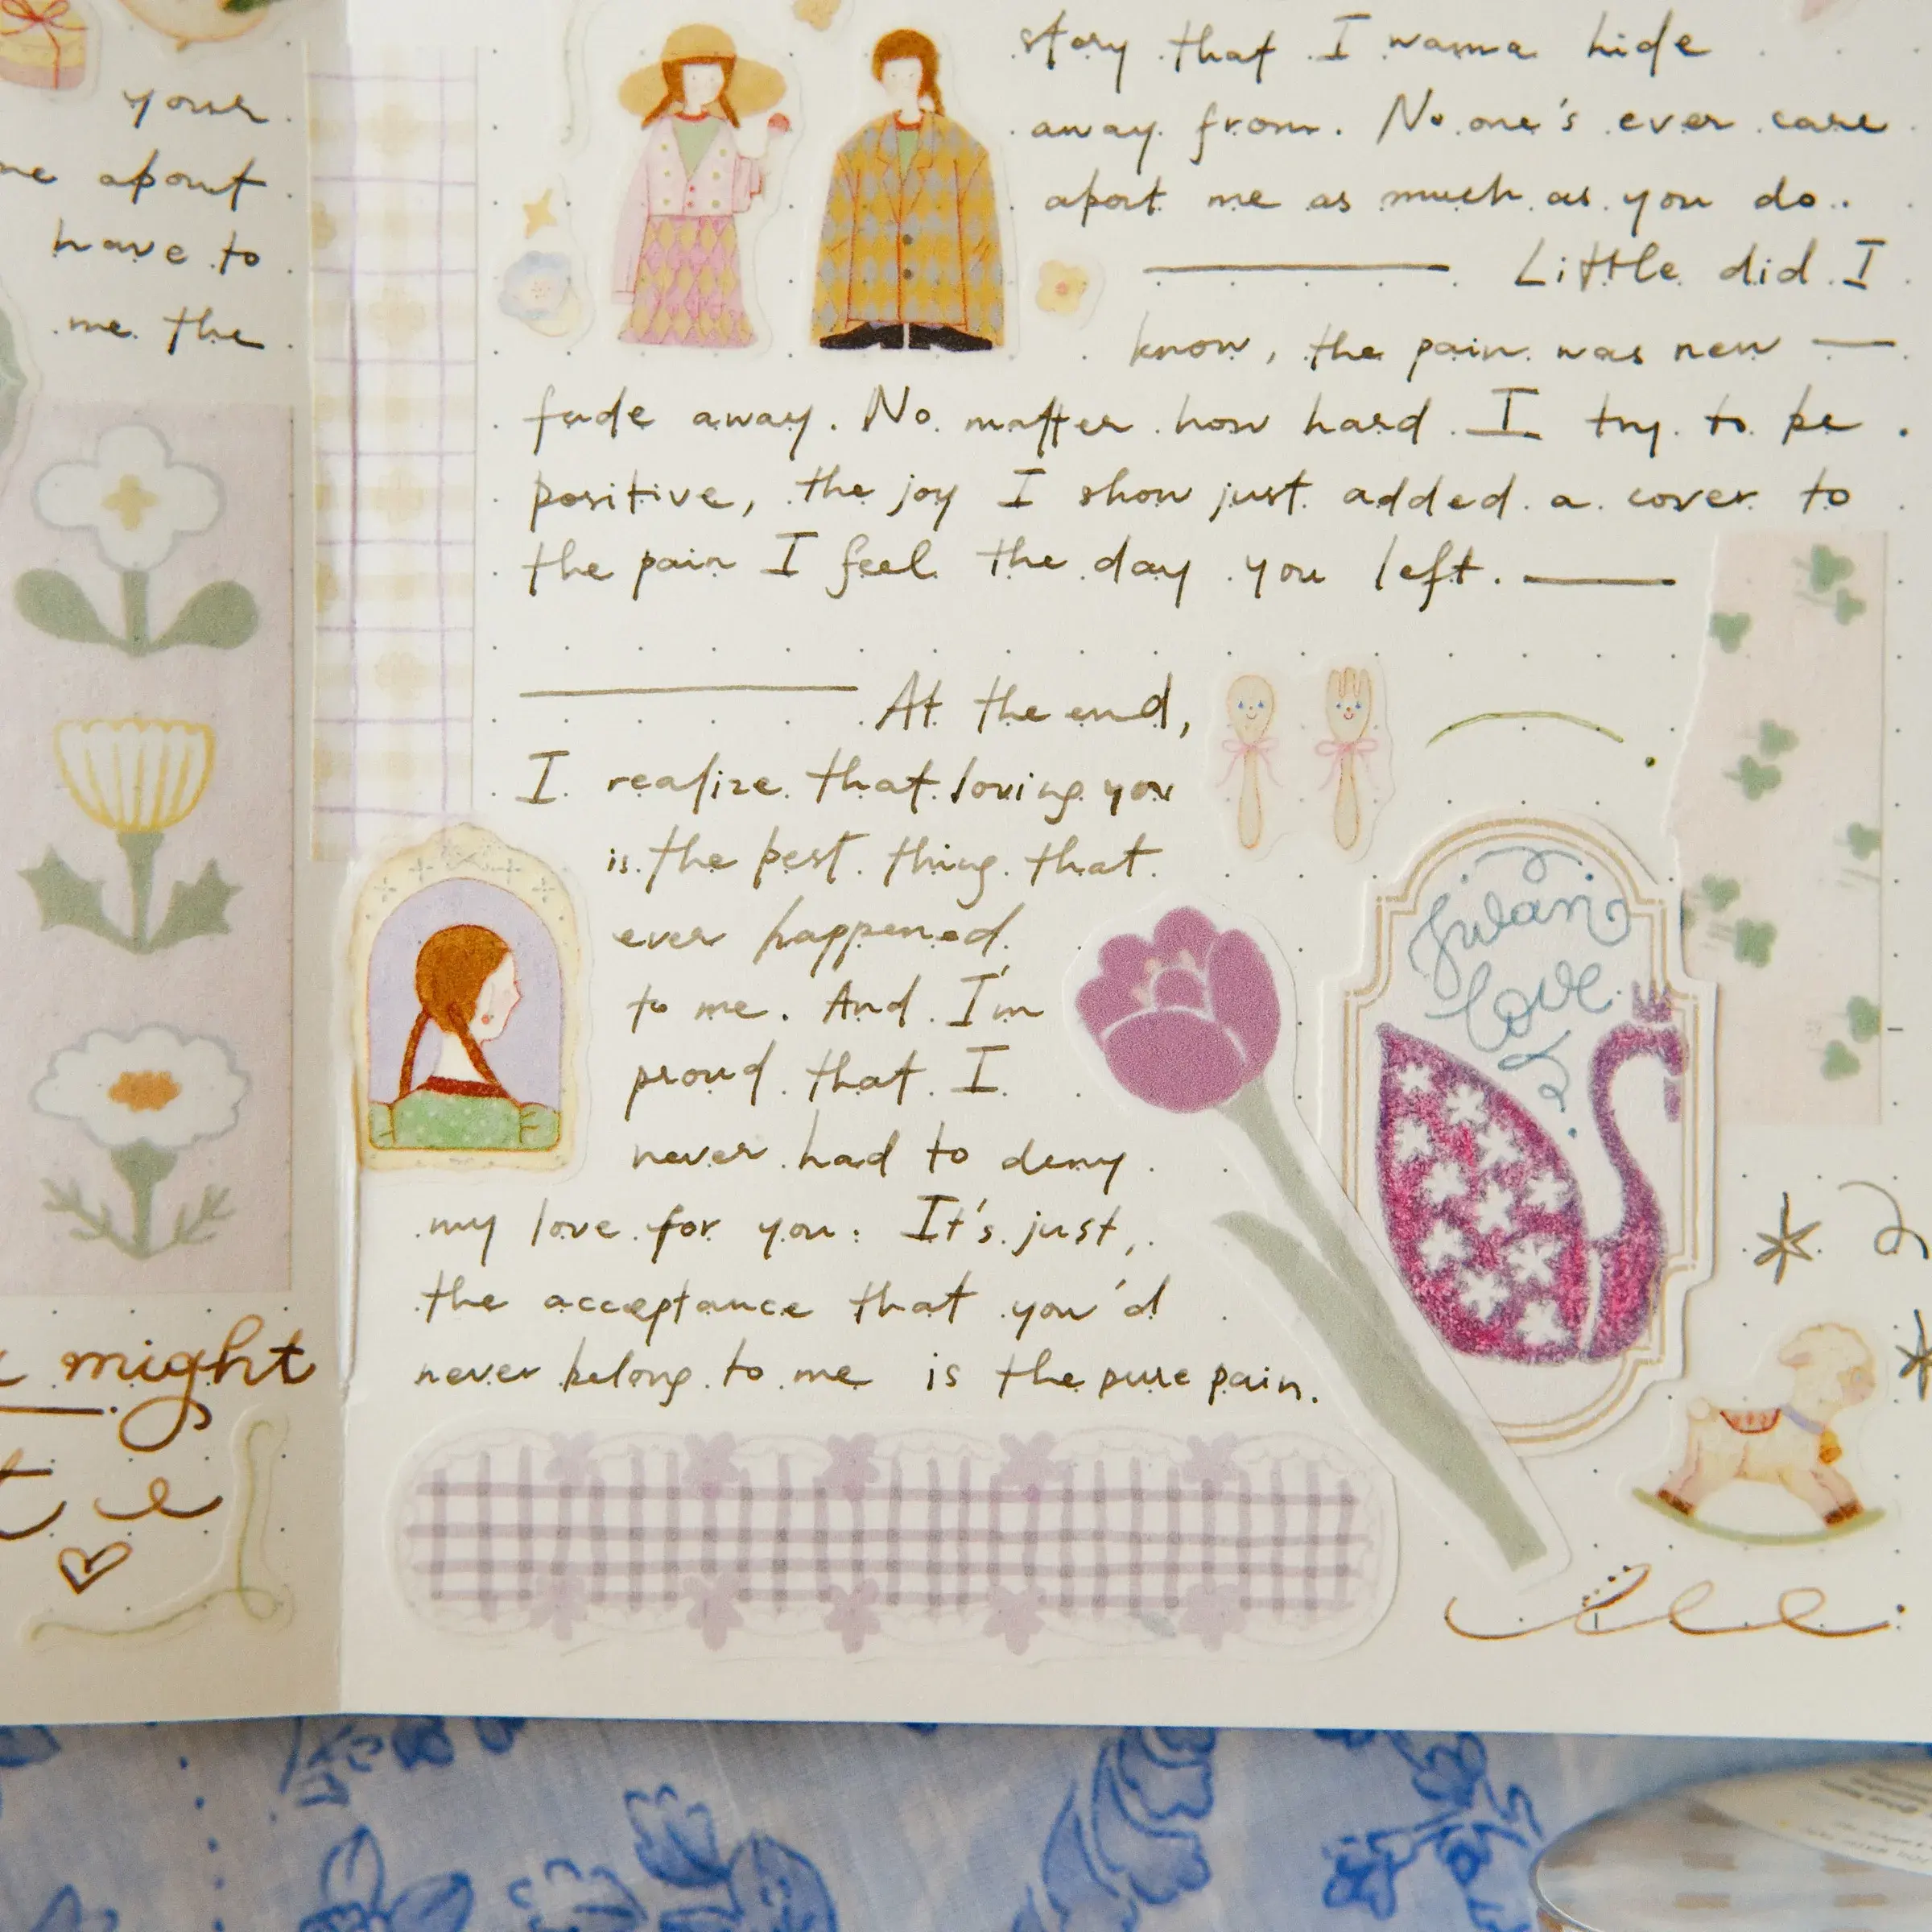 your
me about
have to
me the
might
story that I wanna hide
away from. No one's ever care
abort me as much as you do.
Little did I
know, the pain was new
fade away. No matter how hard I try to be
positive, the joy I show just added a cover to
the pain I feel the day you left.
At the end,
I realize that loving you
is the best thing that
ever happened
to me. And I'm
proud that I
never had to deny
my love for you. It's just,
the acceptance that you'd
never belong to me is the pure pain.
love